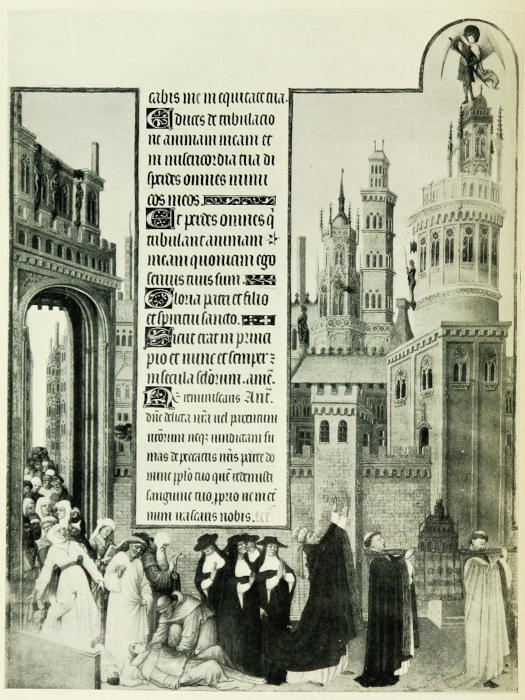 cabis me in equitate tua.
Educes de tribulatio
ne animam meam et
in misericordia tua di
sperdes omnes inimi
cos meos.
Et perdes omnes q̃
tribulant animam
meam quoniam ego
servus tuus sum.
Gloria patri et filio
et spiritui sancto.
Sicut erat in princi
pio et nunc et semper
in secula sclorum. amē.
Ne reminiscaris Ant.
dñe delicta nr̃a vel parentum
nr̃orum neqz vindictam su
mas de peccatis nr̃is parce do
mine pplo tuo quē redemisti
sanguine tuo pprio ne in et
num irascaris nobis.